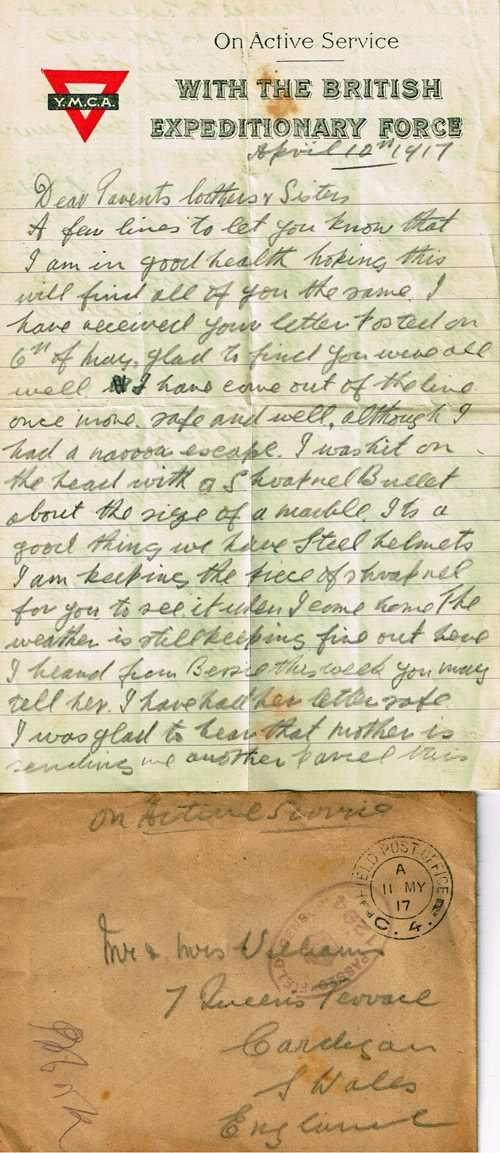 On Active Service
WITH THE BRITISH
EXPEDITIONARY FORCE
Y.M.C.A.
April 12th 1917
Dear Parents brothers & Sisters
A few lines to let you know that
I am in good health hoping this
will find all of you the same. I
have received your letter Posted on
6th of May. glad to find you were all
well I have come out of the line
once more. safe and well, although I
had a narrow escape. I was hit on
the head with a Shrapnel Bullet
about the size of a marble. Its a
good thing we have Steel helmets
I am keeping the piece of shrapnel
for you to see it when I come home The
weather is still keeping fine out here
I heard from Bessie this week you may
tell her. I have had her letter safe
I was glad to hear that mother is
sending me another Parcel this
On Active Service
FIELD POST OFFICE
A
11 MY
17
C. 4.
PASSED FIELD CENSOR
Mr & Mrs Williams
7 Queens Terrace
Cardigan
S Wales
England